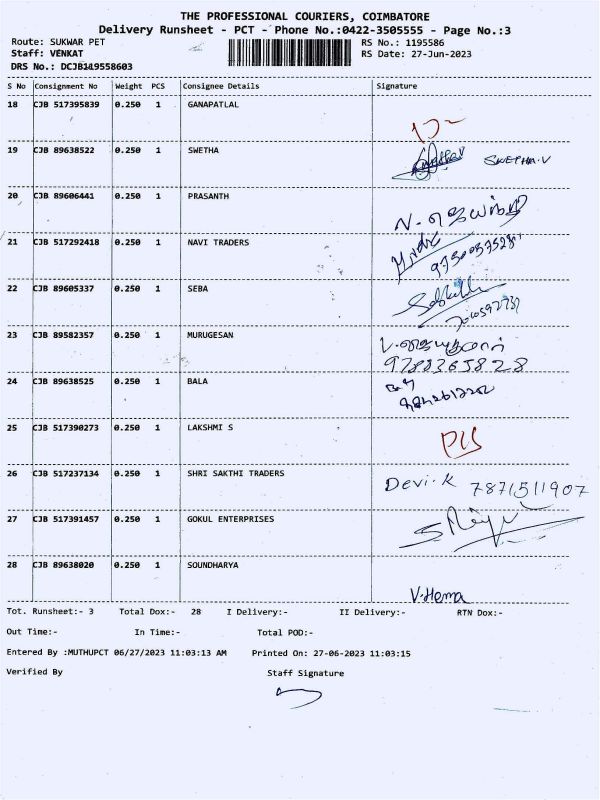 THE PROFESSIONAL COURIERS, COIMBATORE
Delivery Runsheet - PCT - Phone No.:0422-3505555 - Page No.:3
Route: SUKWAR PET RS No.: 1195586
Staff: VENKAT RS Date: 27-Jun-2023
DRS No.: DCJB119558603
S No Consignment No Weight PCS Consignee Details Signature
18 CJB 517395839 0.250 1 GANAPATLAL
19 CJB 89638522 0.250 1 SWETHA SWETHA.V
20 CJB 89606441 0.250 1 PRASANTH
21 CJB 517292418 0.250 1 NAVI TRADERS
22 CJB 89605337 0.250 1 SEBA
23 CJB 89582357 0.250 1 MURUGESAN
9788365828
24 CJB 89638525 0.250 1 BALA
25 CJB 517390273 0.250 1 LAKSHMI S
26 CJB 517237134 0.250 1 SHRI SAKTHI TRADERS Devi.K 7871511907
27 CJB 517391457 0.250 1 GOKUL ENTERPRISES
28 CJB 89638020 0.250 1 SOUNDHARYA V.Hema
Tot. Runsheet:- 3 Total Dox:- 28 I Delivery:- II Delivery:- RTN Dox:-
Out Time:- In Time:- Total POD:-
Entered By :MUTHUPCT 06/27/2023 11:03:13 AM Printed On: 27-06-2023 11:03:15
Verified By Staff Signature